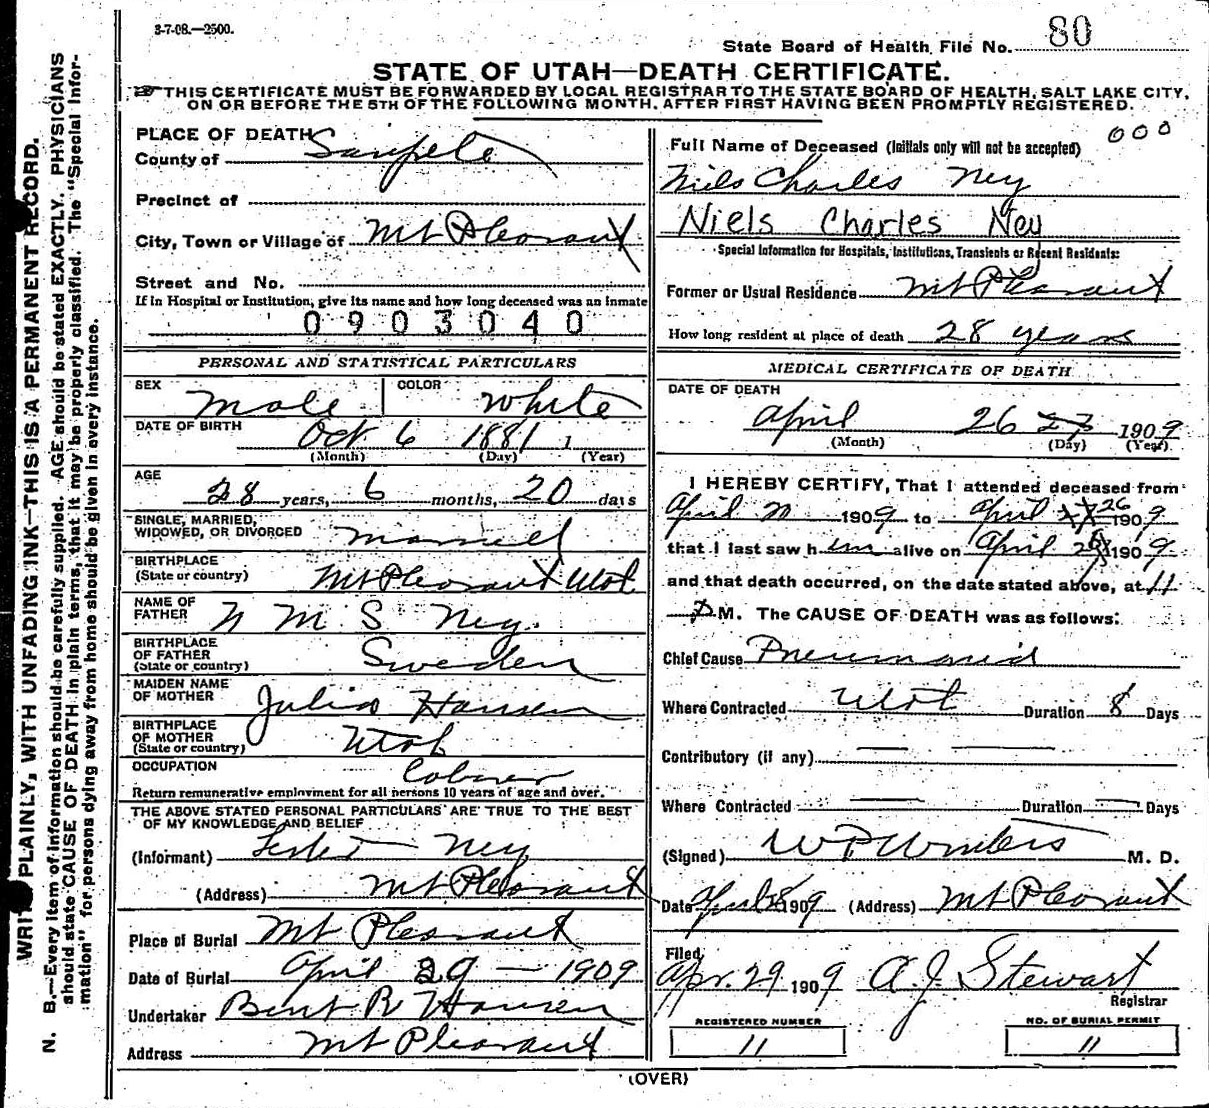 3-7-08.—2500.
State Board of Health File No. 80
STATE OF UTAH—DEATH CERTIFICATE.
THIS CERTIFICATE MUST BE FORWARDED BY LOCAL REGISTRAR TO THE STATE BOARD OF HEALTH, SALT LAKE CITY,
ON OR BEFORE THE 5TH OF THE FOLLOWING MONTH, AFTER FIRST HAVING BEEN PROMPTLY REGISTERED.
WRITE PLAINLY, WITH UNFADING INK—THIS IS A PERMANENT RECORD.
N. B.—Every item of information should be carefully supplied. AGE should be stated EXACTLY. PHYSICIANS
should state CAUSE OF DEATH in plain terms, that it may be properly classified. The "Special Infor-
mation" for persons dying away from home should be given in every instance.
PLACE OF DEATH
County of Sanpete
Precinct of
City, Town or Village of Mt Pleasant
Street and No.
If in Hospital or Institution, give its name and how long deceased was an inmate
0903040
PERSONAL AND STATISTICAL PARTICULARS
SEX Male COLOR White
DATE OF BIRTH Oct 6 1881
(Month) (Day) (Year)
AGE
28 years, 6 months, 20 days
SINGLE, MARRIED,
WIDOWED, OR DIVORCED Married
BIRTHPLACE
(State or country) Mt Pleasant Utah
NAME OF
FATHER N M S Ney
BIRTHPLACE
OF FATHER
(State or country) Sweden
MAIDEN NAME
OF MOTHER Julia Hansen
BIRTHPLACE
OF MOTHER
(State or country) Utah
OCCUPATION Laborer
Return remunerative employment for all persons 10 years of age and over.
THE ABOVE STATED PERSONAL PARTICULARS ARE TRUE TO THE BEST
OF MY KNOWLEDGE AND BELIEF
(Informant) Ney
(Address) Mt Pleasant
Place of Burial Mt Pleasant
Date of Burial April 29 — 1909
Undertaker Bent R Hansen
Address Mt Pleasant
000
Full Name of Deceased (Initials only will not be accepted)
Niels Charles Ney
Niels Charles Ney
Special Information for Hospitals, Institutions, Transients or Recent Residents:
Former or Usual Residence Mt Pleasant
How long resident at place of death 28 years
MEDICAL CERTIFICATE OF DEATH
DATE OF DEATH
April 26 1909
(Month) (Day) (Year)
I HEREBY CERTIFY, That I attended deceased from
April 20 1909 to April 26 1909
that I last saw him alive on April 26 1909
and that death occurred, on the date stated above, at 11
P M. The CAUSE OF DEATH was as follows:
Chief Cause Pneumonia
Where Contracted Utah Duration 8 Days
Contributory (if any)
Where Contracted Duration Days
(Signed) W P Winters M. D.
Date April 28 1909 (Address) Mt Pleasant
Filed
Apr. 29 1909 A. J. Stewart
Registrar
REGISTERED NUMBER
11
NO. OF BURIAL PERMIT
11
(OVER)